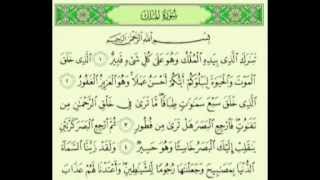 سُورَةُ الْمُلْكِ
بِسْمِ اللَّهِ الرَّحْمَٰنِ الرَّحِيمِ
تَبَٰرَكَ الَّذِى بِيَدِهِ الْمُلْكُ وَهُوَ عَلَىٰ كُلِّ شَىْءٍ قَدِيرٌ ١ الَّذِى خَلَقَ
الْمَوْتَ وَالْحَيَوٰةَ لِيَبْلُوَكُمْ أَيُّكُمْ أَحْسَنُ عَمَلًا وَهُوَ الْعَزِيزُ الْغَفُورُ ٢
الَّذِى خَلَقَ سَبْعَ سَمَٰوَٰتٍ طِبَاقًا مَّا تَرَىٰ فِى خَلْقِ الرَّحْمَٰنِ مِن
تَفَٰوُتٍ فَارْجِعِ الْبَصَرَ هَلْ تَرَىٰ مِن فُطُورٍ ٣ ثُمَّ ارْجِعِ الْبَصَرَ كَرَّتَيْنِ
يَنقَلِبْ إِلَيْكَ الْبَصَرُ خَاسِئًا وَهُوَ حَسِيرٌ ٤ وَلَقَدْ زَيَّنَّا السَّمَاءَ
الدُّنْيَا بِمَصَٰبِيحَ وَجَعَلْنَٰهَا رُجُومًا لِّلشَّيَٰطِينِ وَأَعْتَدْنَا لَهُمْ عَذَابَ